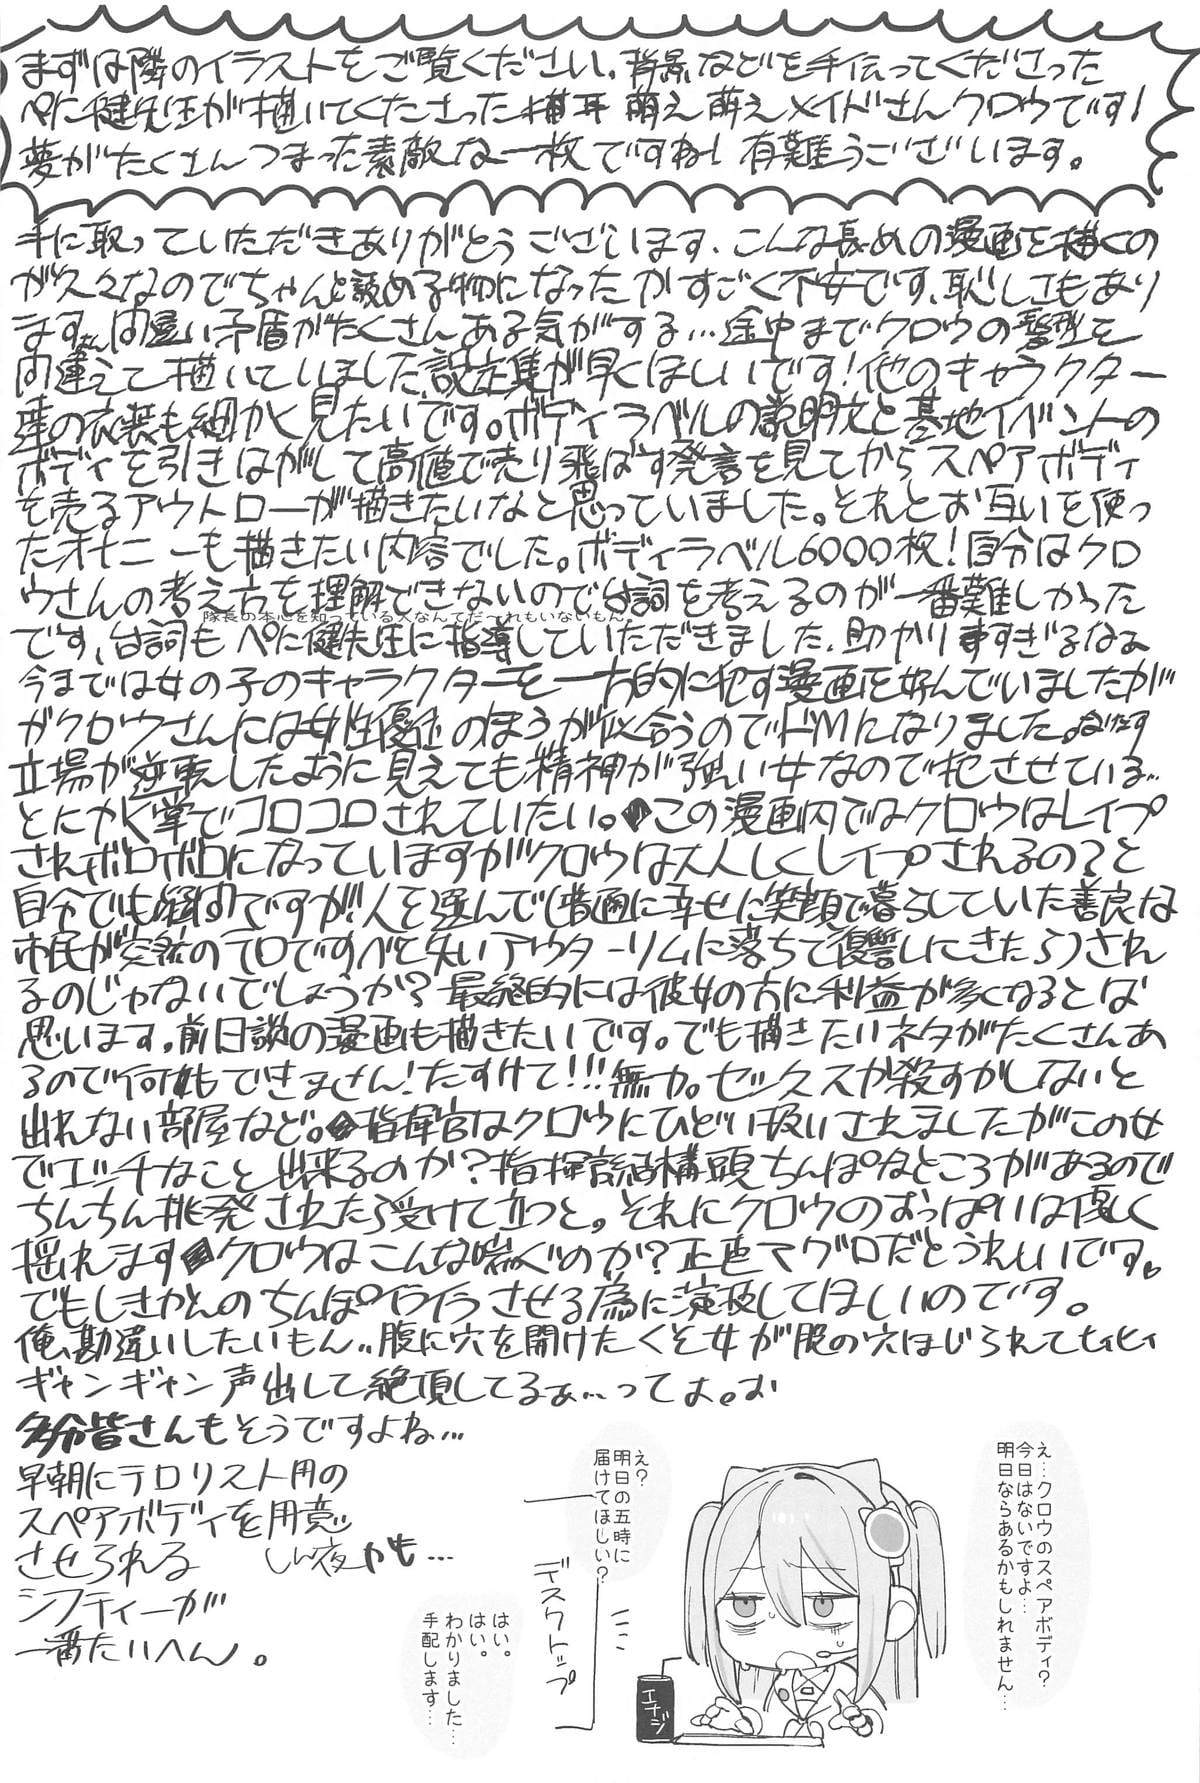 まずは隣のイラストをご覧ください。背景などを手伝ってくださった
ぺに健先生が描いてくださった猫耳 萌え萌えメイドさんクロウです!
夢がたくさんつまった素敵な一枚ですね! 有難うございます。
手に取っていただきありがとうございます、こんな長めの漫画を描くの
が久々なのでちゃんと読める物になったかすごく不安です、恥しさもあり
ます。間違い矛盾がたくさんある気がする…途中までクロウの髪型を
間違えて描いていました設定集が早くほしいです!他のキャラクター
達の衣装も細かく見たいです。ボディラベルの説明文と基地イベントの
ボディを引きはがして高値で売り飛ばす発言を見てからスペアボディ
を売るアウトローが描きたいなと思っていました。それとお互いを使っ
たオナニーも描きたい内容でした。ボディラベル6000枚!自分はクロ
ウさんの考え方を理解できないので台詞を考えるのが一番難しかった
隊長の本心を知っている人なんてだ~れもいないもん。
です、台詞もぺに健先生に指導していただきました、助かりますすぎるなぁ
今までは女の子のキャラクターを一方的に犯す漫画を好んでいましたがが
クロウさんには女性優位のほうが似合うのでドMになりました。
立場が逆転したように見えても精神が強い女なので犯させている…
とにかく掌でコロコロされていたい。この漫画内ではクロウはレイプ
されボロボロになっていますがクロウは大人しくレイプされるの?と
自分でも疑問ですが!人を選んで(普通に幸せに笑顔で暮らしていた善良な
市民が突然のテロですべて失いアウターリムに落ちて復讐しにきたら)され
るのじゃないでしょうか?最終的には彼女の方に利益が多くなるとは
思います。前日談の漫画も描きたいです。でも描きたいネタがたくさんあ
るので何もできません!たすけて!!!無力。セックスか殺すかしないと
出れない部屋など。指揮官はクロウにひどい扱いされましたがこの女
でエッチなこと出来るのか?指揮官結構頭ちんぽなところがあるので
ちんちん挑発されたら受けて立つと。それにクロウのおっぱいは優しく
揺れますクロウはこんな喘ぐのか?正直マグロだとうれしいです。
でもしきかんのちんぽイライラさせる為に演技してほしいのです。
俺、勘違いしたいもん..腹に穴を開けたくそ女が股の穴ほじられてヒィヒィ
ギャンギャン声出して絶頂してるぁ…ってよ。お
多分皆さんもそうですよね…
早朝にテロリスト用の
スペアボディを用意
させられる しん夜かも…
シフティーが
一番たいへん。
え…クロウのスペアボディ?
今日はないですよ…
明日ならあるかもしれません…
え?
明日の五時に
届けてほしい?
デスクトップ
はい。
はい。
わかりました…
手配します…
エナジ